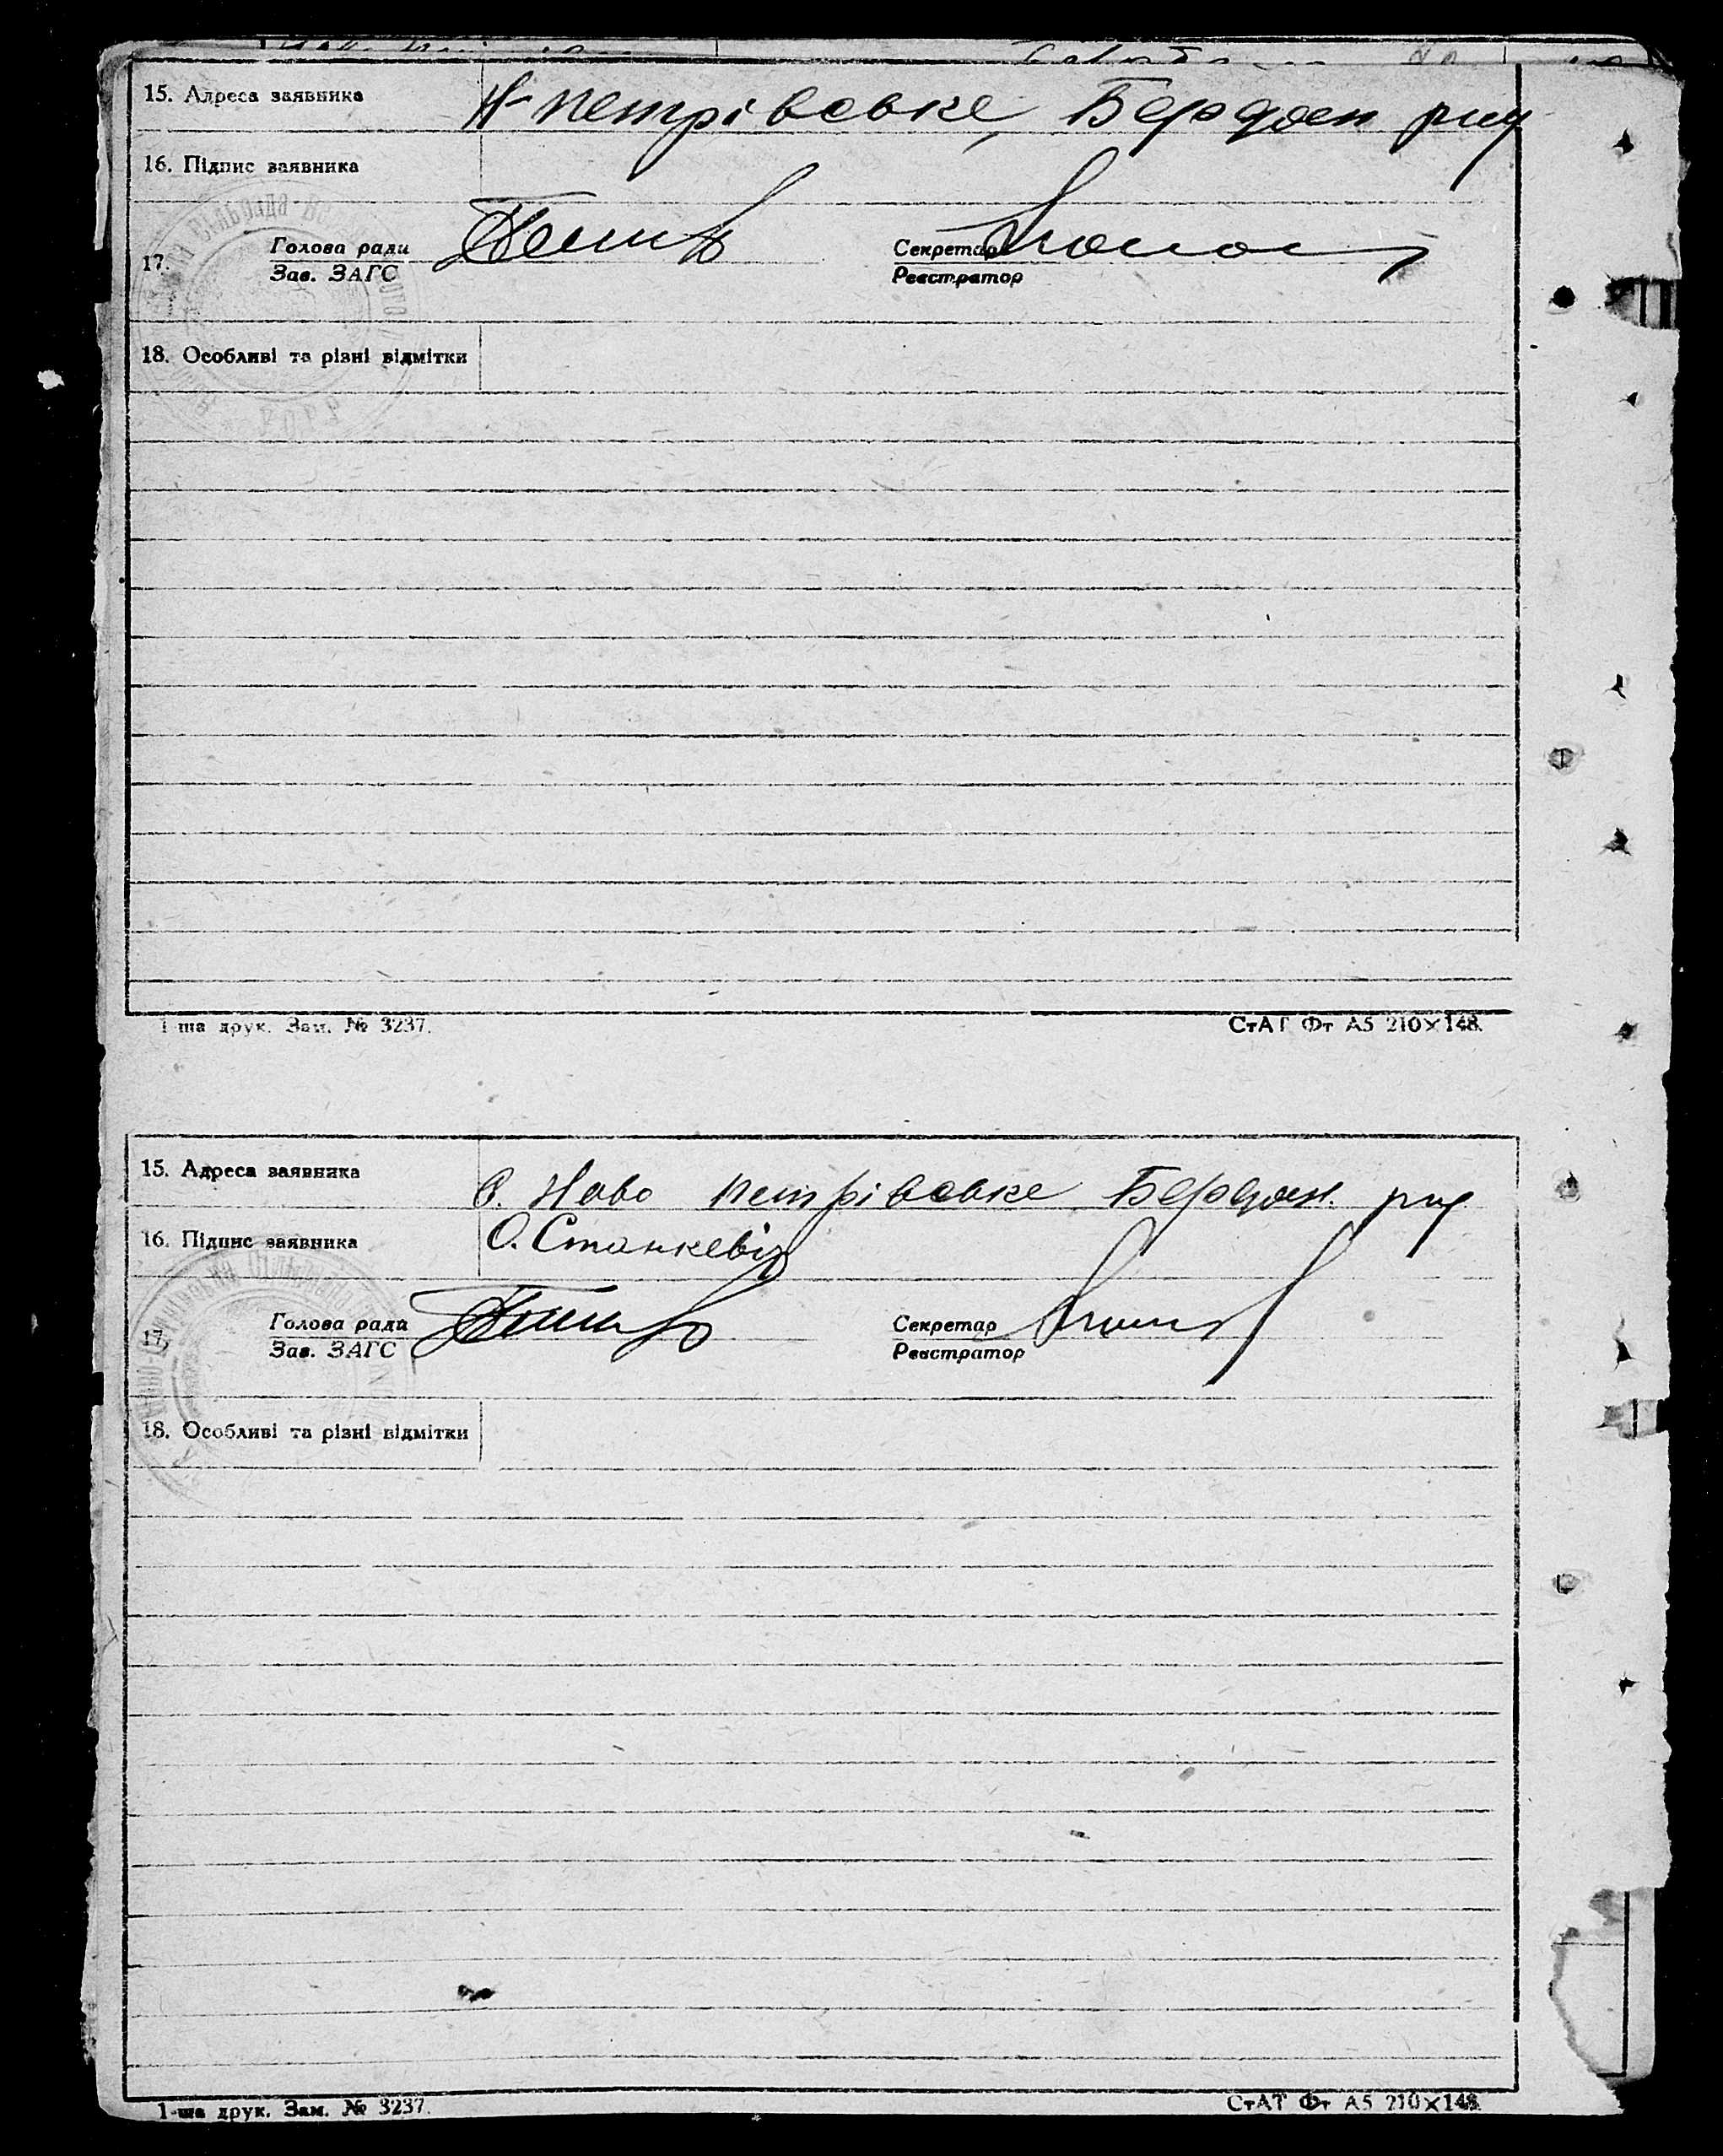 15. Адреса заявника Н-петрівське, Бердян рну
16. Підпис заявника
17. Голова ради Секретар
Зав. ЗАГС Реєстратор
18. Особливі та різні відмітки
1-ша друк. Зам. № 3237. СтАТ Фт А5 210×148.
15. Адреса заявника С. Ново петрівське Бердян. рну.
16. Підпис заявника О. Станкевіч
17. Голова ради Секретар
Зав. ЗАГС Реєстратор
18. Особливі та різні відмітки
1-ша друк. Зам. № 3237. СтАТ Фт А5 210×148.